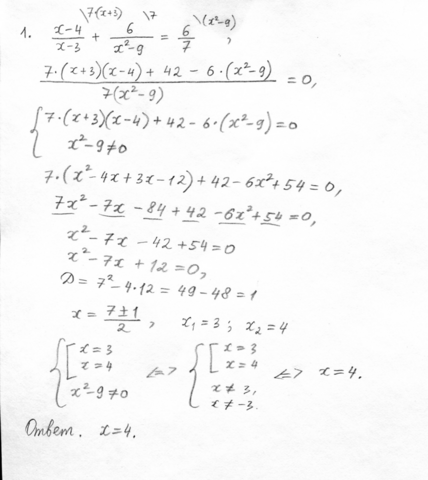 \7(x+3) \7 \(x²-9)
1. (x-4)/(x-3) + 6/(x²-9) = 6/7 ,
(7·(x+3)(x-4) + 42 - 6·(x²-9))/(7(x²-9)) = 0,
{ 7·(x+3)(x-4) + 42 - 6·(x²-9) = 0
x²-9≠0
7·(x²-4x+3x-12)+42-6x²+54=0,
7x²-7x-84+42-6x²+54=0,
x²-7x-42+54=0
x²-7x+12=0,
D=7²-4·12=49-48=1
x = (7±1)/2 , x₁=3 ; x₂=4
{ [ x=3 x=4 x²-9≠0 <=> { [ x=3 x=4 x≠3, x≠-3. <=> x=4.
Ответ. x=4.